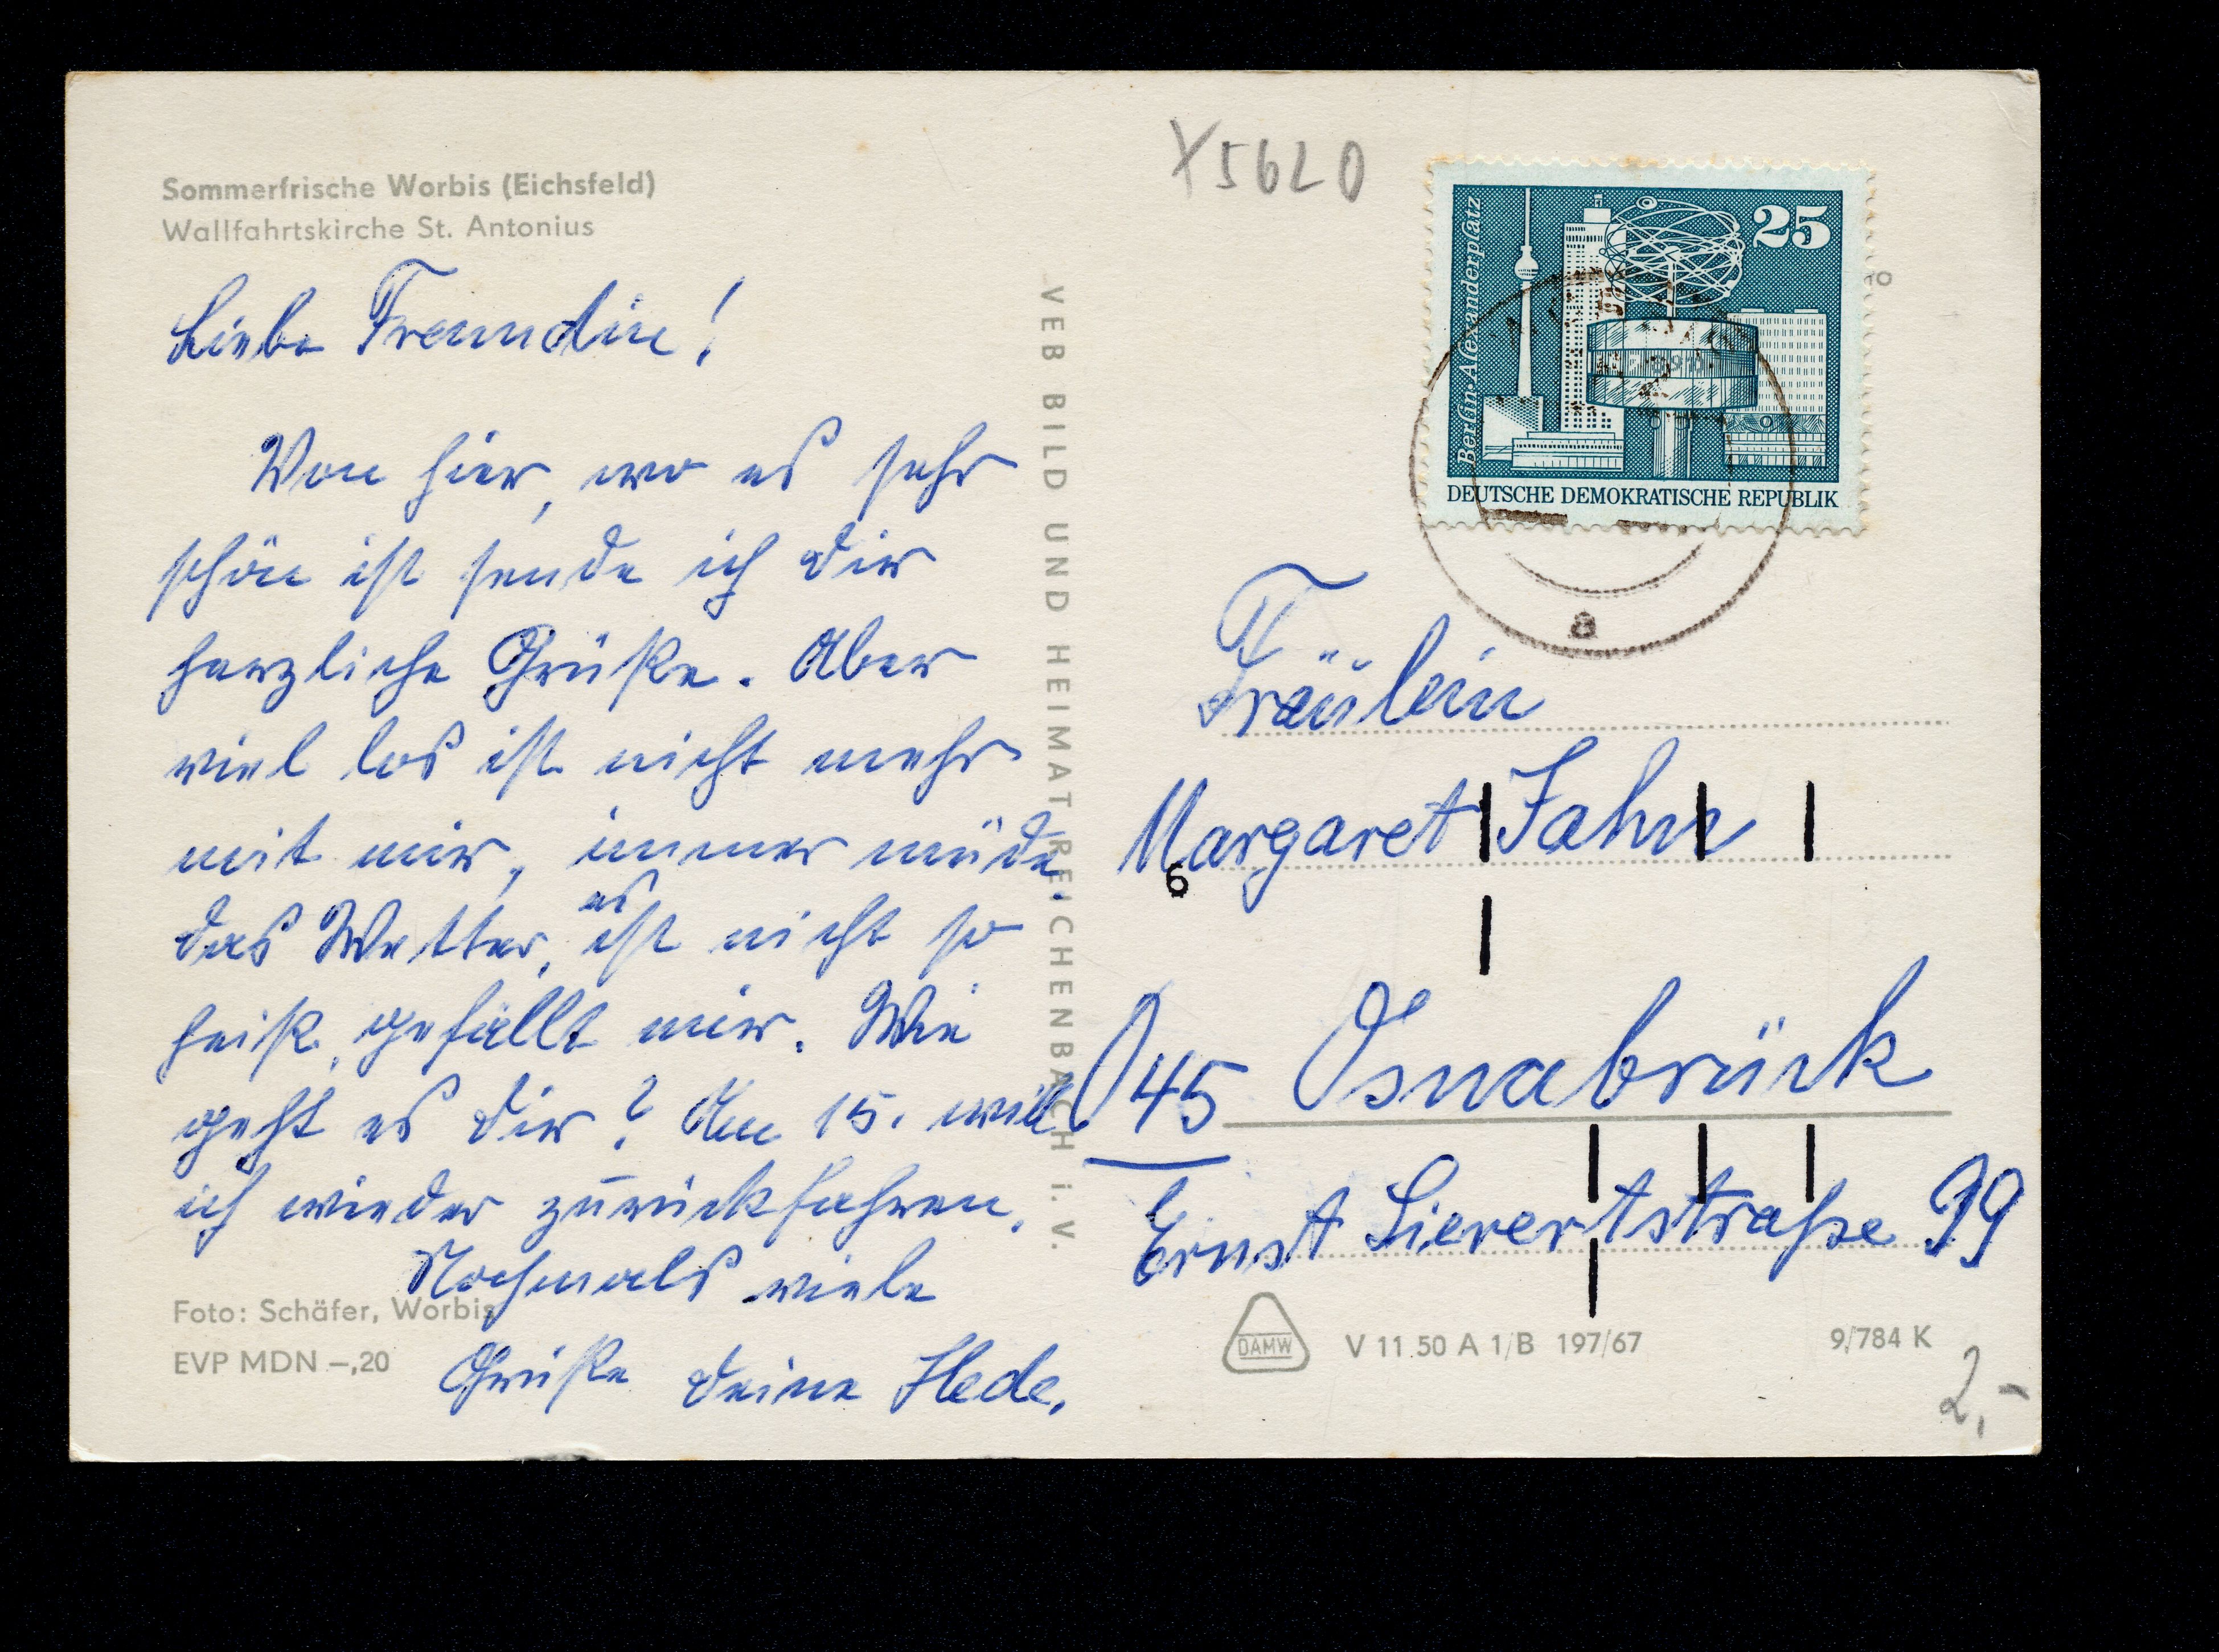 Sommerfrische Worbis (Eichsfeld)
Wallfahrtskirche St. Antonius
Liebe Freundin!
Von hier, wo es sehr
schön ist sende ich dir
herzliche Grüße. Aber
viel los ist nicht mehr
mit mir, immer müde.
das Wetter, es ist nicht so
heiß, gefällt mir. Wie
geht es dir? Am 15. will
ich wieder zurückfahren.
Nochmals viele
Grüße deine Hede.
Foto: Schäfer, Worbis
EVP MDN –,20
VEB BILD UND HEIMAT REICHENBACH i. V.
X5620
Berlin-Alexanderplatz
25
DEUTSCHE DEMOKRATISCHE REPUBLIK
a
Fräulein
Margaret Jahn
6
45 Osnabrück
Ernst Sievertstraße 99
DAMW
V 11 50 A 1/B 197/67
9/784 K
2,-